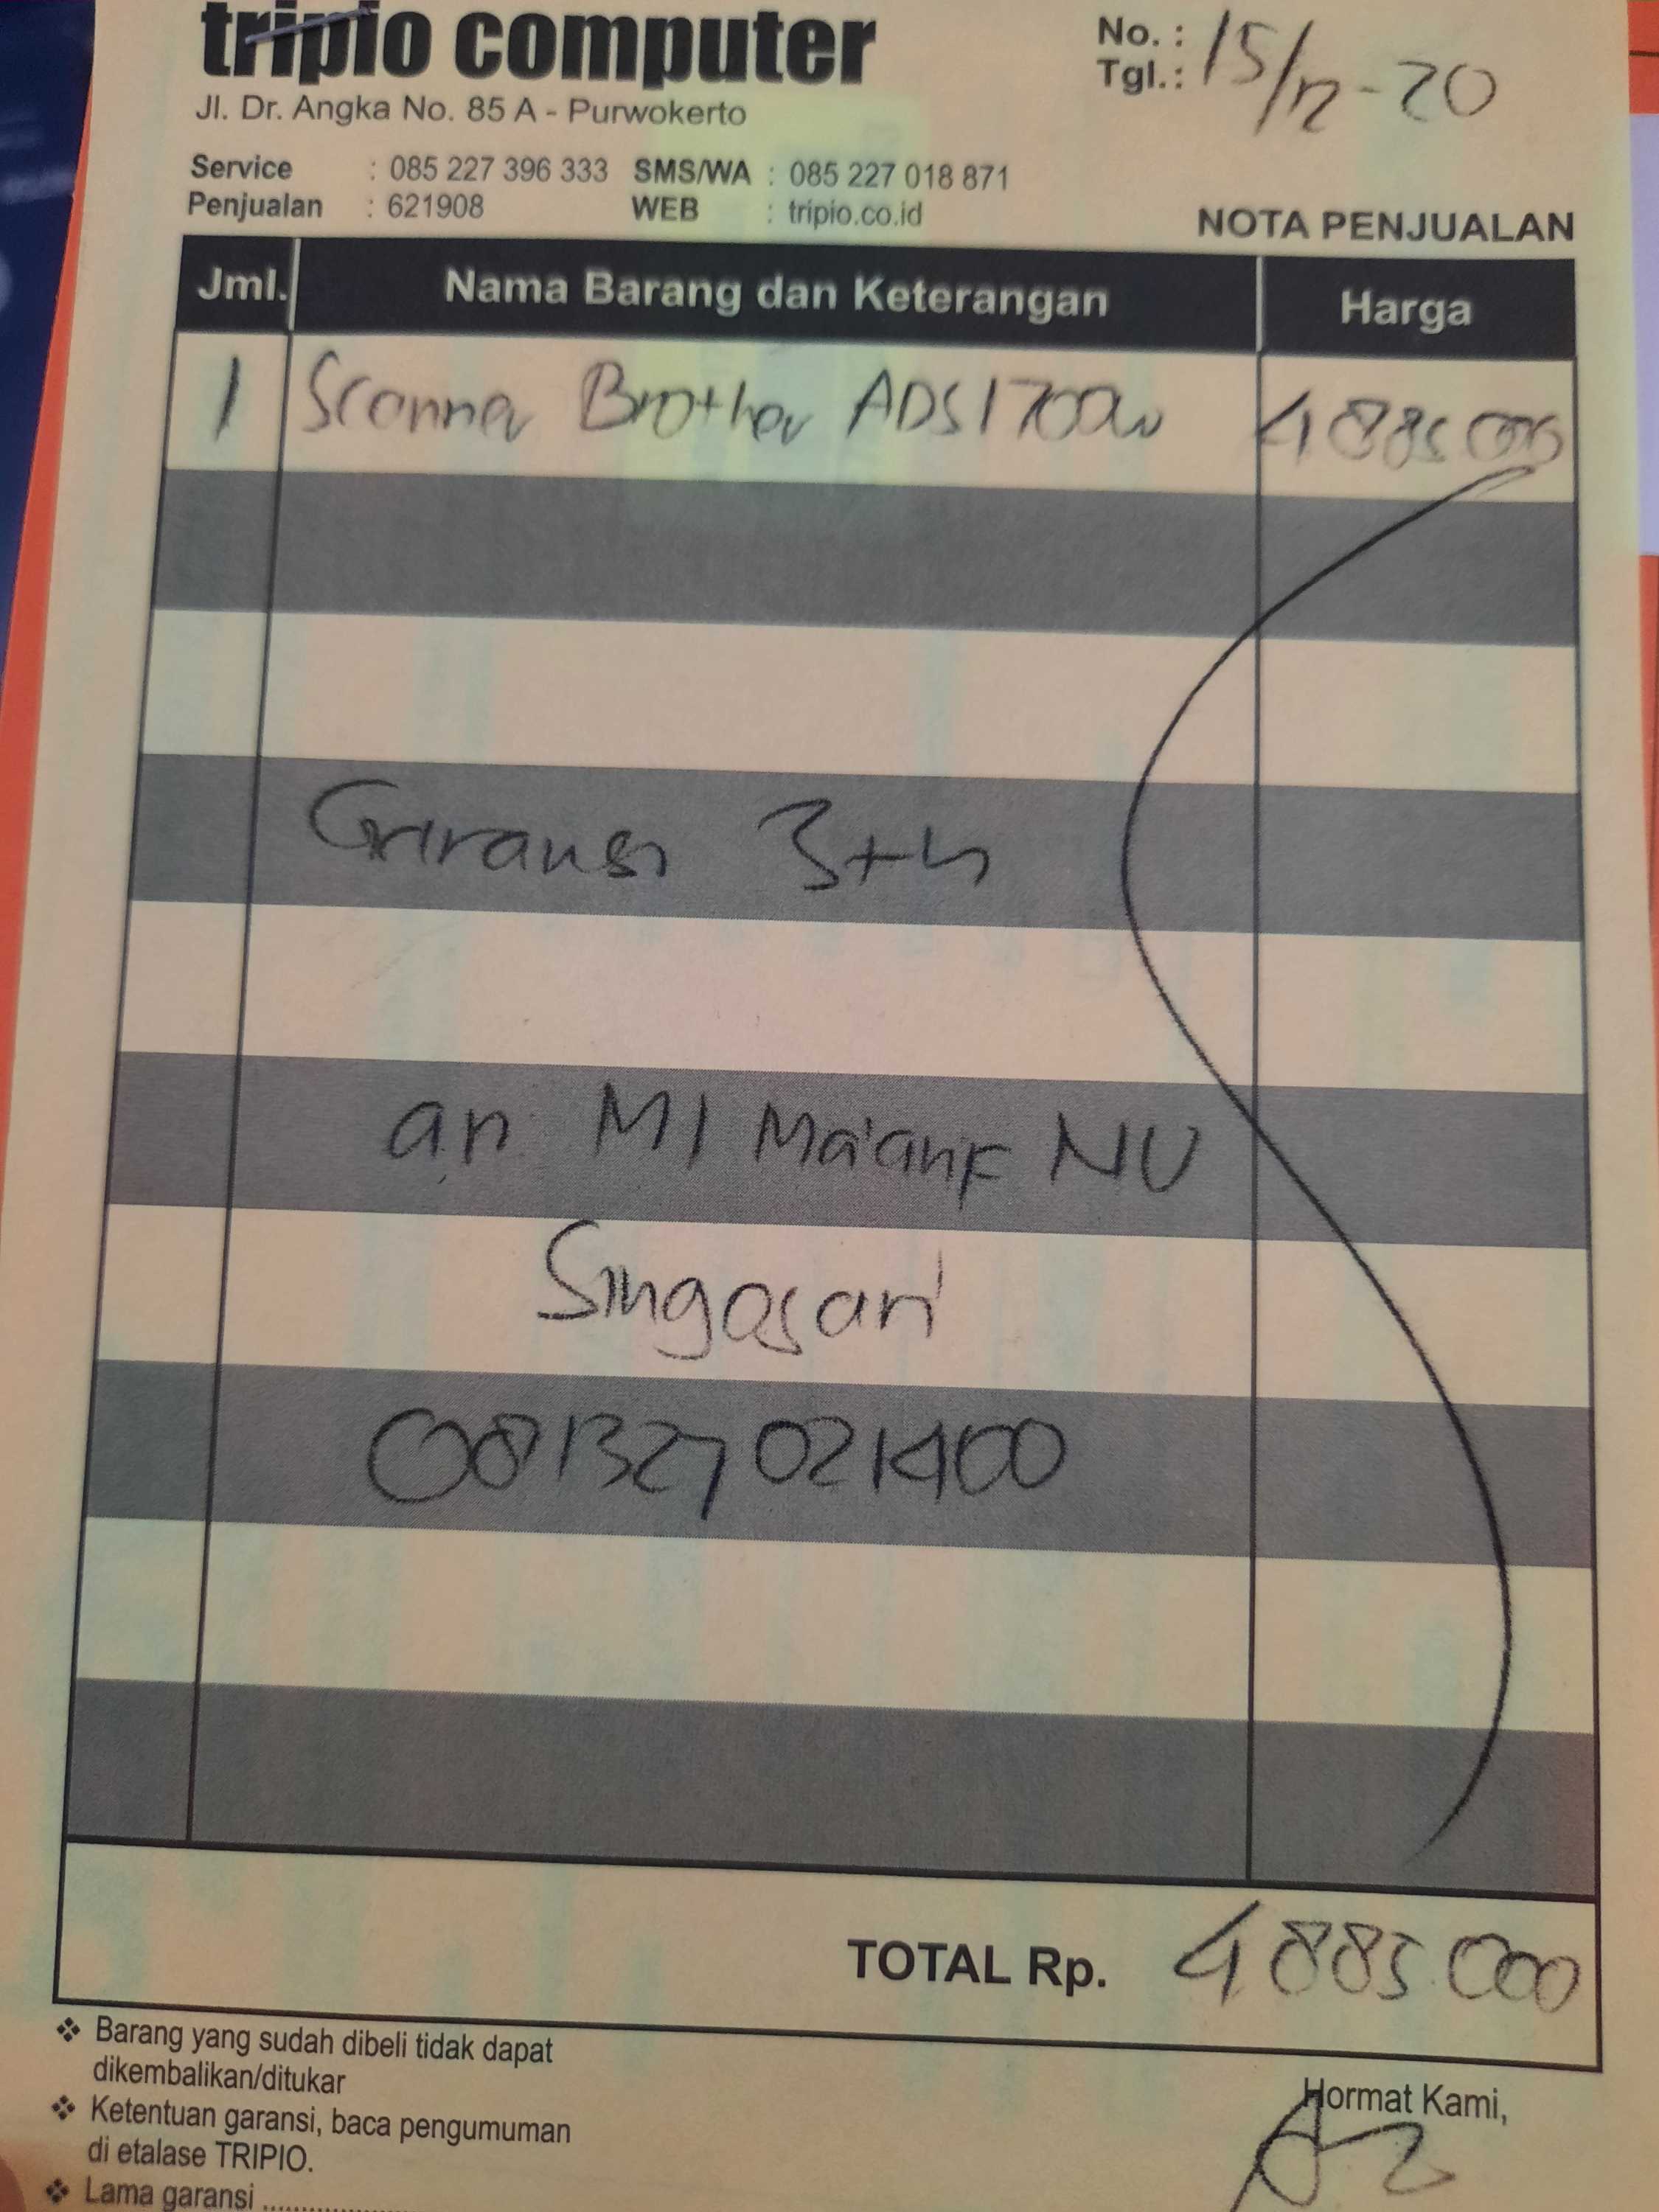 tripio computer
Jl. Dr. Angka No. 85 A - Purwokerto
No. :
Tgl. : 15/12-20
Service : 085 227 396 333 SMS/WA : 085 227 018 871
Penjualan : 621908 WEB : tripio.co.id
NOTA PENJUALAN
Jml. Nama Barang dan Keterangan Harga
1 Scanner Brother ADS1700W 4885000
Garansi 3th
an MI Ma'arif NU
Singasari
081327021400
TOTAL Rp. 4885.000
❖ Barang yang sudah dibeli tidak dapat
dikembalikan/ditukar
❖ Ketentuan garansi, baca pengumuman
di etalase TRIPIO.
❖ Lama garansi ....................
Hormat Kami,